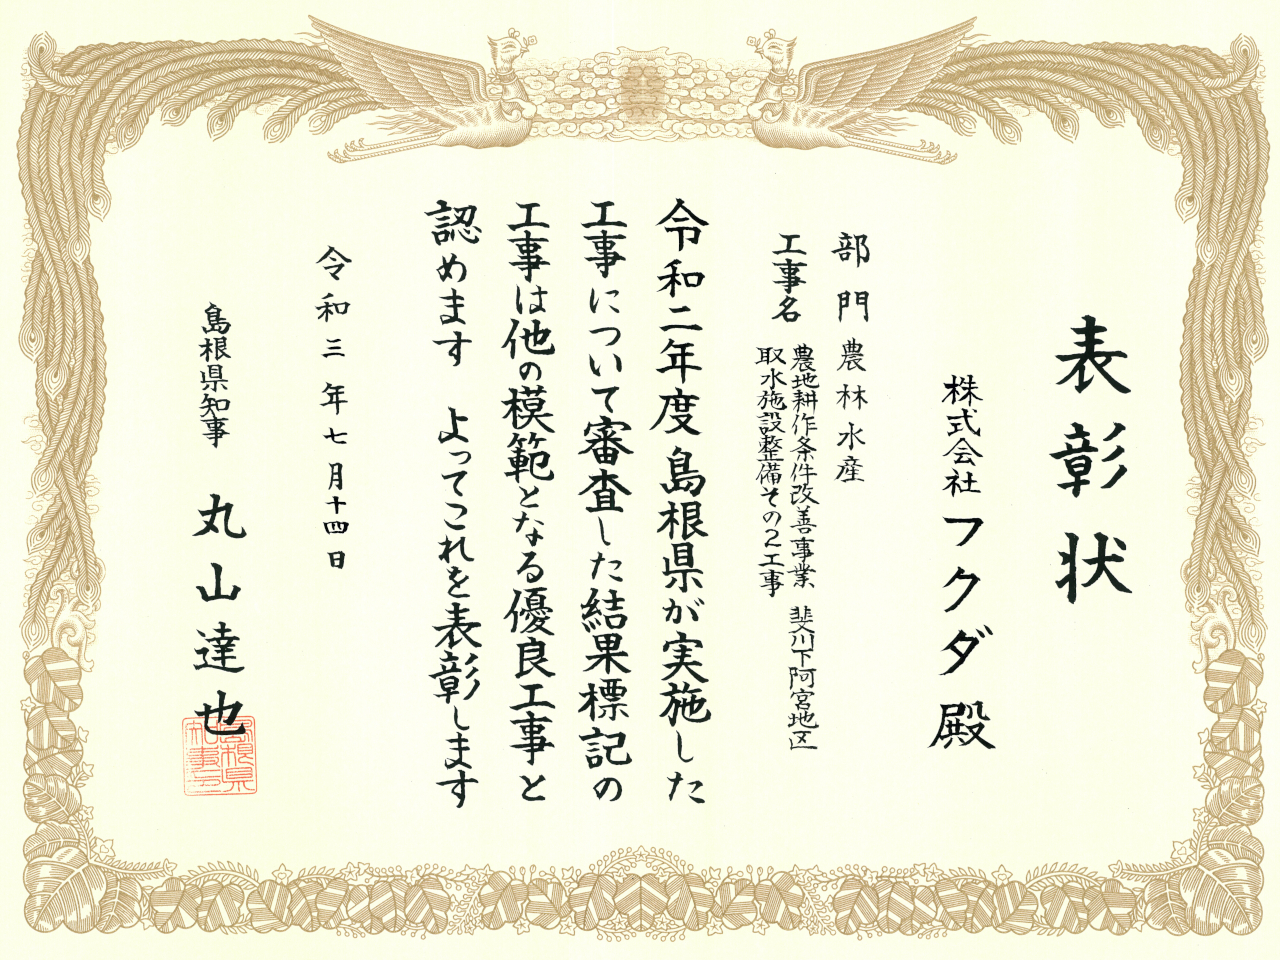 表彰状
株式会社フクダ殿
部門 農林水産
工事名 農地耕作条件改善事業 斐川下阿宮地区
取水施設整備その2工事
令和二年度島根県が実施した
工事について審査した結果標記の
工事は他の模範となる優良工事と
認めます よってこれを表彰します
令和三年七月十四日
島根県知事 丸山達也
島根県
知事之印